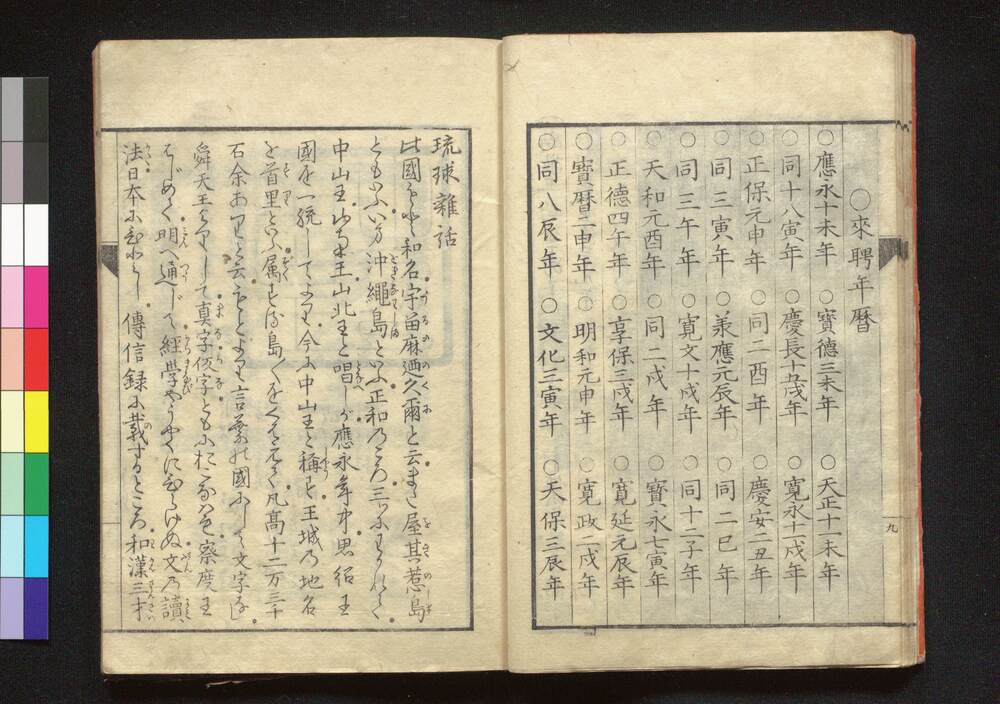 ○來聘年暦
○應永十未年 ○寶德三未年 ○天正十一未年
○同十八寅年 ○慶長十五戌年 ○寛永十一戌年
○正保元申年 ○同二酉年 ○慶安二丑年
○同三寅年 ○義應元辰年 ○同二巳年
○同三午年 ○寛文十戌年 ○同十二子年
○天和元酉年 ○同二戌年 ○寶永七寅年
○正德四午年 ○享保三戌年 ○寛延元辰年
○寶暦二申年 ○明和元申年 ○寛政二戌年
○同八辰年 ○文化三寅年 ○天保三辰年
九
琉球雜話
此國もと和名宇留麻廼久爾と云また屋其惹島
ともいふいま沖繩島といふ正和のころ三つにわかれて
中山王山南王山北王と唱しが應永年中思紹王
國を一統してより今に中山王と稱す王城の地名
を首里といふ属する島〳〵をくはえて凡高十二万三千
石余ありと云もとより言葉の國にして文字なし
舜天王よりして真字仮字ともに察度王
はじめて明へ通じて經學やうやくにひらけぬ文の讀
法日本に傳信録に載するところ和漢三才